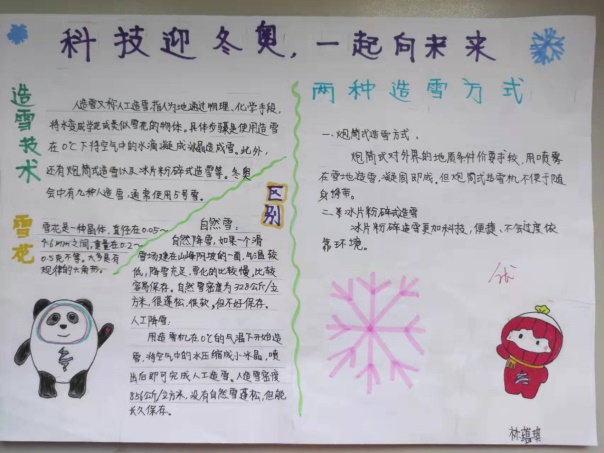 科技迎冬奥，一起向未来
造雪技术
人造雪又称人工造雪，指人为地通过物理、化学手段，
将水变成学起来或类似雪花的物体。具体步骤是使用造雪
在0℃下将空气中的水滴凝成冰晶造成雪。此外，
还有炮筒式造雪以及冰片粉碎式造雪等。冬奥
会中有九种人造雪，通常使用5号雪。
雪花
雪花是一种晶体，直径在0.05～
4.6mm之间，重量在0.2～
0.5克不等。大多是有
规律的六角形。
区别
自然雪：
自然降雪，如果一个滑
雪场建在山峰阿坡的一面，与温较
低，降雪充足，雪化的比较慢，比较
容易保存。自然雪密度为328公斤/立
方米，很蓬松，很软，但不好保存。
人工降雪：
用造雪机在0℃的与温下开始造
雪，将空气中的水压缩成小冰晶，喷
出后即可完成人工造雪。人造雪密度
856公斤/立方米，没有自然雪蓬松，但能
长久保存。
两种造雪方式
一.炮筒式造雪方式：
炮筒式对外界的地质条件价要求较，用喷雾
在雪地造雪，凝固即成。但炮筒式造雪机不便于随
身携带。
二.冰片粉碎式造雪
冰片粉碎造雪更加科技，便捷、不会过度依
靠环境。
优